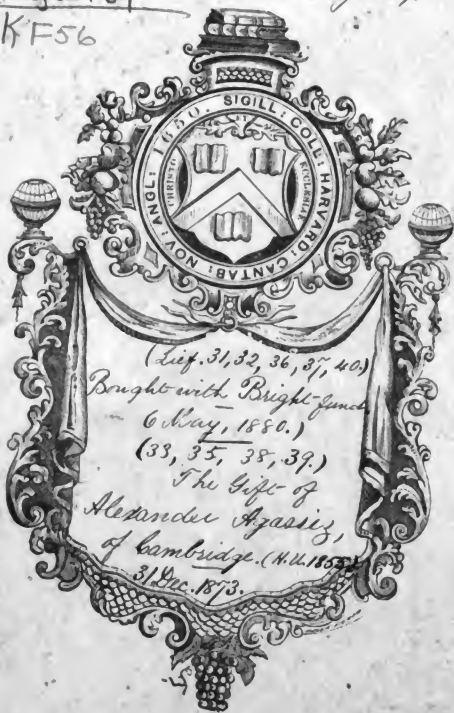 KF56
SIGILL: COLL: HARVARD CANTAB: NOV: ANGL: 1650.
CHRISTO
ECCLESIAE
(Lief. 31, 32, 36, 37, 40.)
Bought with Bright fund
6 May, 1880.)
(33, 35, 38, 39.)
The Gift of
Alexander Agassiz,
of Cambridge. (H.U. 1855.)
31 Dec. 1873.